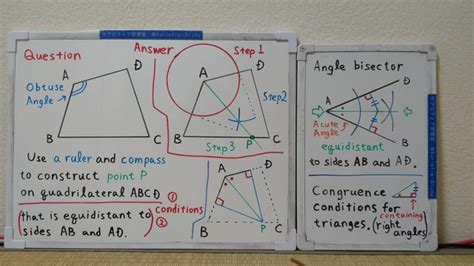 Question
A
D
Obtuse
Angle
B
C
Use a ruler and compass
to construct point P
on quadrilateral ABCD
(that is equidistant to
sides AB and AD.)
① conditions
②
Answer
Step 1
A
D
Step2
B
P
C
Step 3
A
D
B
P
C
Angle bisector
D
A
Acute
Angle
B
equidistant
to sides AB and AD.
Congruence
conditions for
trianges. (containing
right angles)